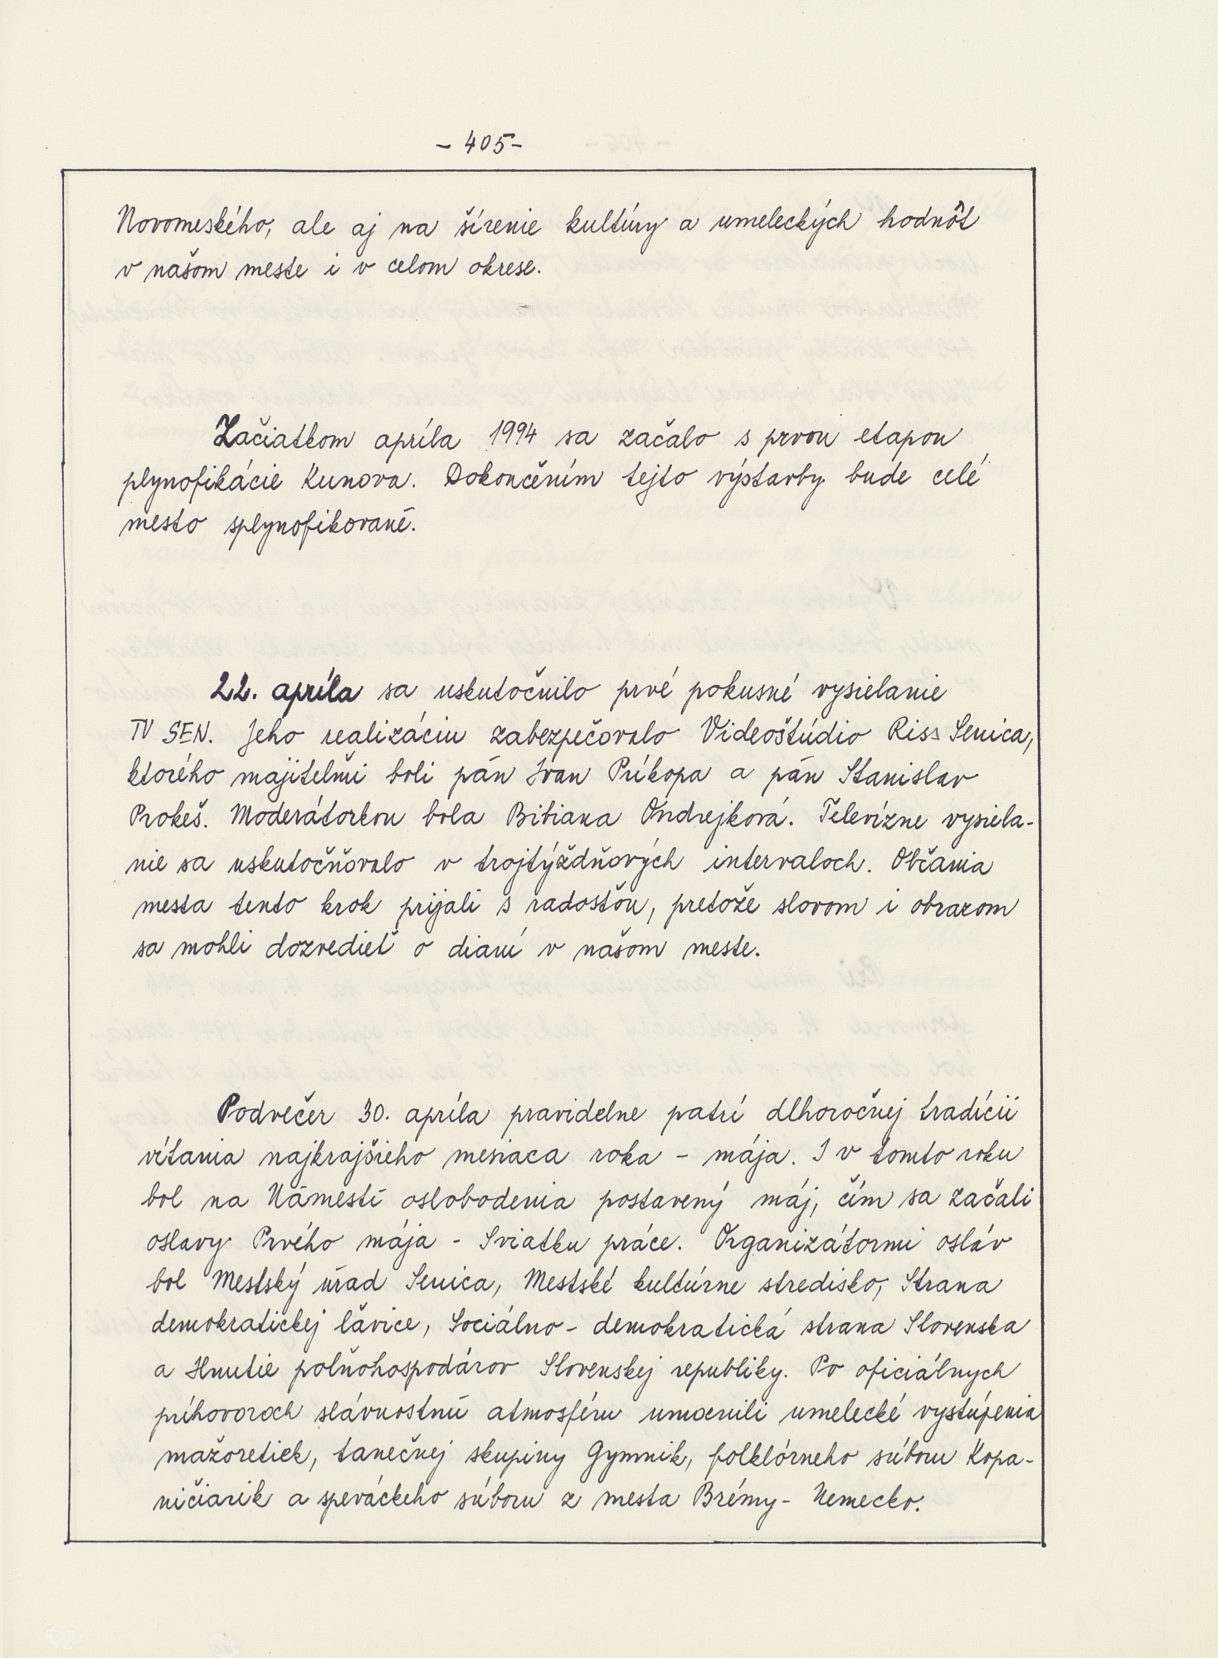 - 405 -
Novomeského, ale aj na šírenie kultúry a umeleckých hodnôt
v našom meste i v celom okrese.
Začiatkom apríla 1994 sa začalo s prvou etapou
plynofikácie Kunova. Dokončením tejto výstavby bude celé
mesto splynofikované.
22. apríla sa uskutočnilo prvé pokusné vysielanie
TV SEN. Jeho realizáciu zabezpečovalo Videoštúdio Riss Senica,
ktorého majiteľmi boli pán Ivan Príkopa a pán Stanislav
Prokeš. Moderátorkou bola Bibiana Ondrejková. Televízne vysiela-
nie sa uskutočňovalo v trojtýždňových intervaloch. Občania
mesta tento krok prijali s radosťou, pretože slovom i obrazom
sa mohli dozvedieť o dianí v našom meste.
Podvečer 30. apríla pravidelne patrí dlhoročnej tradícii
vítania najkrajšieho mesiaca roka - mája. I v tomto roku
bol na Námestí oslobodenia postavený máj, čím sa začali
oslavy Prvého mája - Sviatku práce. Organizátormi osláv
bol Mestský úrad Senica, Mestské kultúrne stredisko, Strana
demokratickej ľavice, Sociálno - demokratická strana Slovenska
a Hnutie poľnohospodárov Slovenskej republiky. Po oficiálnych
príhovoroch slávnostnú atmosféru umocnili umelecké vystúpenia
mažoretiek, tanečnej skupiny Gymnik, folklórneho súboru Kopa-
ničiarik a speváckeho súboru z mesta Brémy - Nemecko.